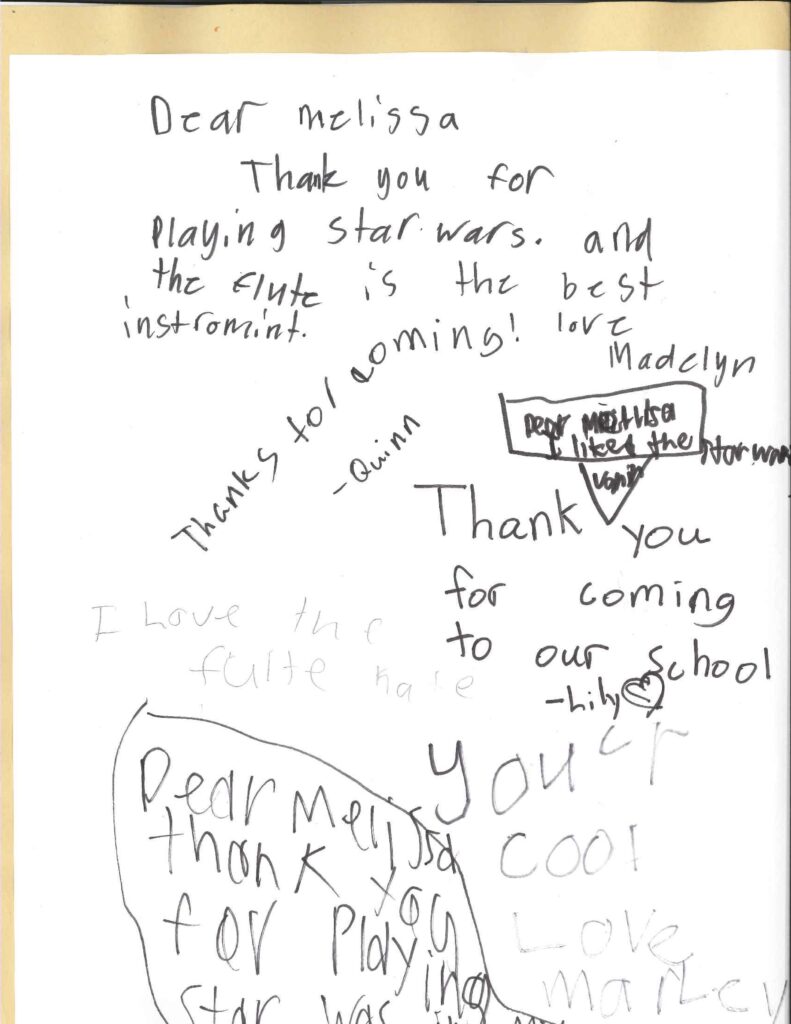 Dear melissa
Thank you for
Playing star wars. and
the flute is the best
instromint. love
Madelyn
Thanks for coming!
-Quinn
Dear
I liked the star
Thank you
for coming
to our school
-Lily
I Love the
fulte kate
Dear Melissa
thank you
for Playing
star was
you er
cool
Love
Marley